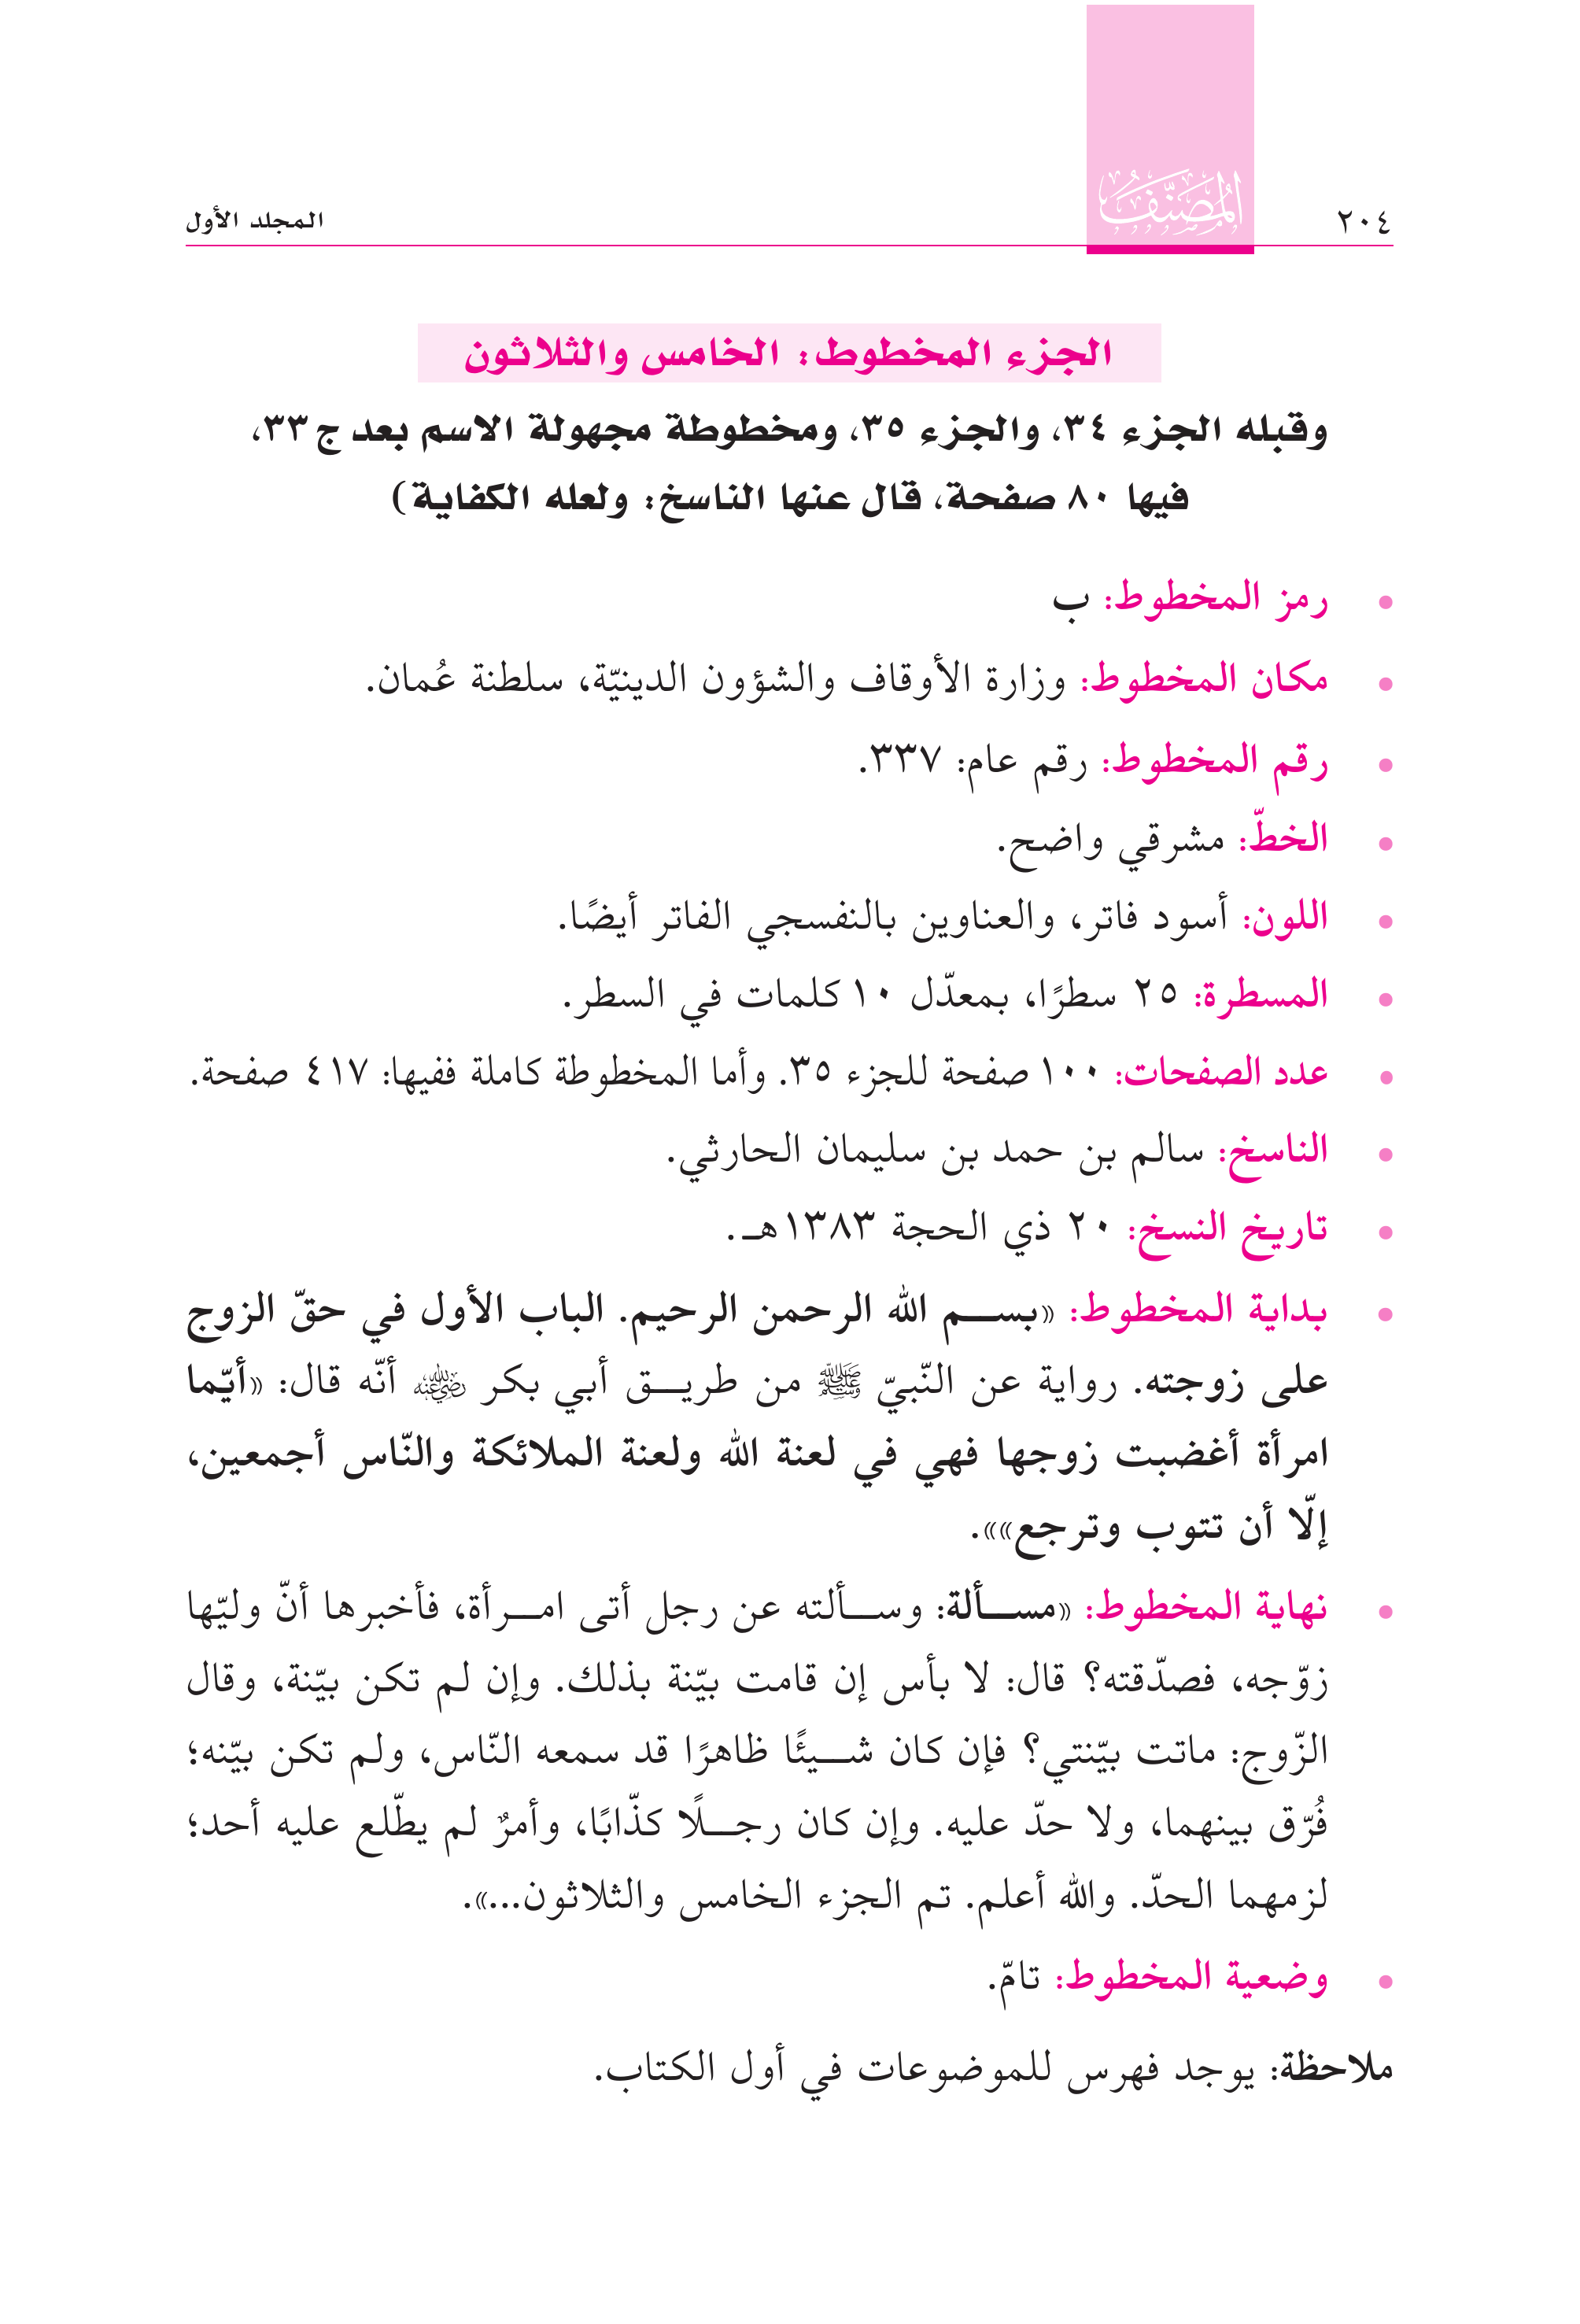 ٢٠٤
المُصَنَّفُ
المجلد الأول
الجزء المخطوط: الخامس والثلاثون
وقبله الجزء ٣٤، والجزء ٣٥، ومخطوطة مجهولة الاسم بعد ج ٣٣،
فيها ٨٠ صفحة، قال عنها الناسخ: ولعله الكفاية)
• رمز المخطوط: ب
• مكان المخطوط: وزارة الأوقاف والشؤون الدينيّة، سلطنة عُمان.
• رقم المخطوط: رقم عام: ٣٣٧.
• الخطّ: مشرقي واضح.
• اللون: أسود فاتر، والعناوين بالنفسجي الفاتر أيضًا.
• المسطرة: ٢٥ سطرًا، بمعدّل ١٠ كلمات في السطر.
• عدد الصفحات: ١٠٠ صفحة للجزء ٣٥. وأما المخطوطة كاملة ففيها: ٤١٧ صفحة.
• الناسخ: سالم بن حمد بن سليمان الحارثي.
• تاريخ النسخ: ٢٠ ذي الحجة ١٣٨٣هـ.
• بداية المخطوط: «بسم الله الرحمن الرحيم. الباب الأول في حقّ الزوج
على زوجته. رواية عن النّبيّ ﷺ من طريق أبي بكر رضي الله عنه أنّه قال: «أيّما
امرأة أغضبت زوجها فهي في لعنة الله ولعنة الملائكة والنّاس أجمعين،
إلّا أن تتوب وترجع»».
• نهاية المخطوط: «مسألة: وسألته عن رجل أتى امرأة، فأخبرها أنّ وليّها
زوّجه، فصدّقته؟ قال: لا بأس إن قامت بيّنة بذلك. وإن لم تكن بيّنة، وقال
الزّوج: ماتت بيّنتي؟ فإن كان شيئًا ظاهرًا قد سمعه النّاس، ولم تكن بيّنه؛
فُرّق بينهما، ولا حدّ عليه. وإن كان رجلًا كذّابًا، وأمرٌ لم يطّلع عليه أحد؛
لزمهما الحدّ. والله أعلم. تم الجزء الخامس والثلاثون...».
• وضعية المخطوط: تامّ.
ملاحظة: يوجد فهرس للموضوعات في أول الكتاب.